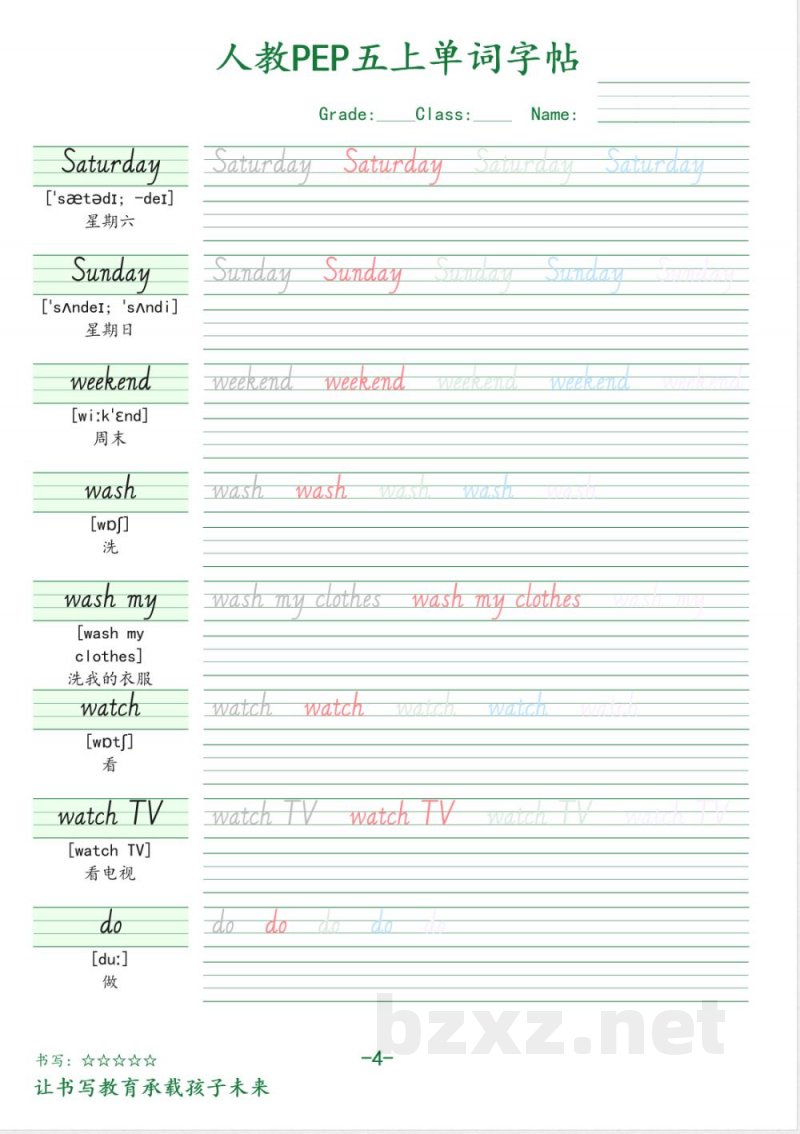 人教PEP五上单词字帖
Grade:____Class:____ Name:
Saturday Saturday Saturday Saturday Saturday
['sætədɪ; -deɪ]
星期六
Sunday Sunday Sunday Sunday Sunday Sunday
['sʌndeɪ; 'sʌndi]
星期日
weekend weekend weekend weekend weekend weekend
[wiːk'ɛnd]
周末
wash wash wash wash wash wash
[wɒʃ]
洗
wash my wash my clothes wash my clothes wash my
[wash my
clothes]
洗我的衣服
watch watch watch watch watch watch
[wɒtʃ]
看
watch TV watch TV watch TV watch TV watch TV
[watch TV]
看电视
do do do do do do
[duː]
做
书写: ☆☆☆☆☆
-4-
让书写教育承载孩子未来
bzxz.net